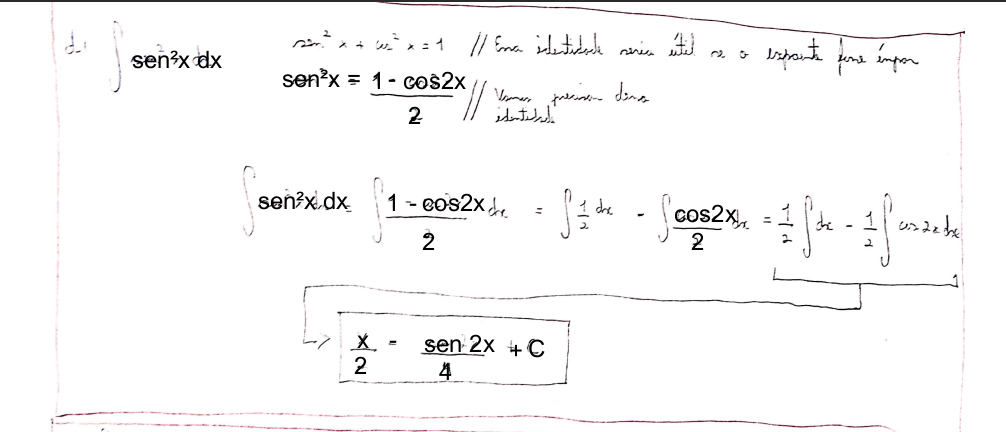 d: ∫ sen²x dx
sen² x + cos² x = 1 // Essa identidade seria útil se o expoente fosse ímpar
sen²x = 1 - cos2x / 2 // Vamos precisar dessa identidade
∫ sen²x dx = ∫ 1 - cos2x / 2 dx = ∫ 1/2 dx - ∫ cos2x / 2 dx = 1/2 ∫ dx - 1/2 ∫ cos 2x dx
x/2 - sen 2x / 4 + C